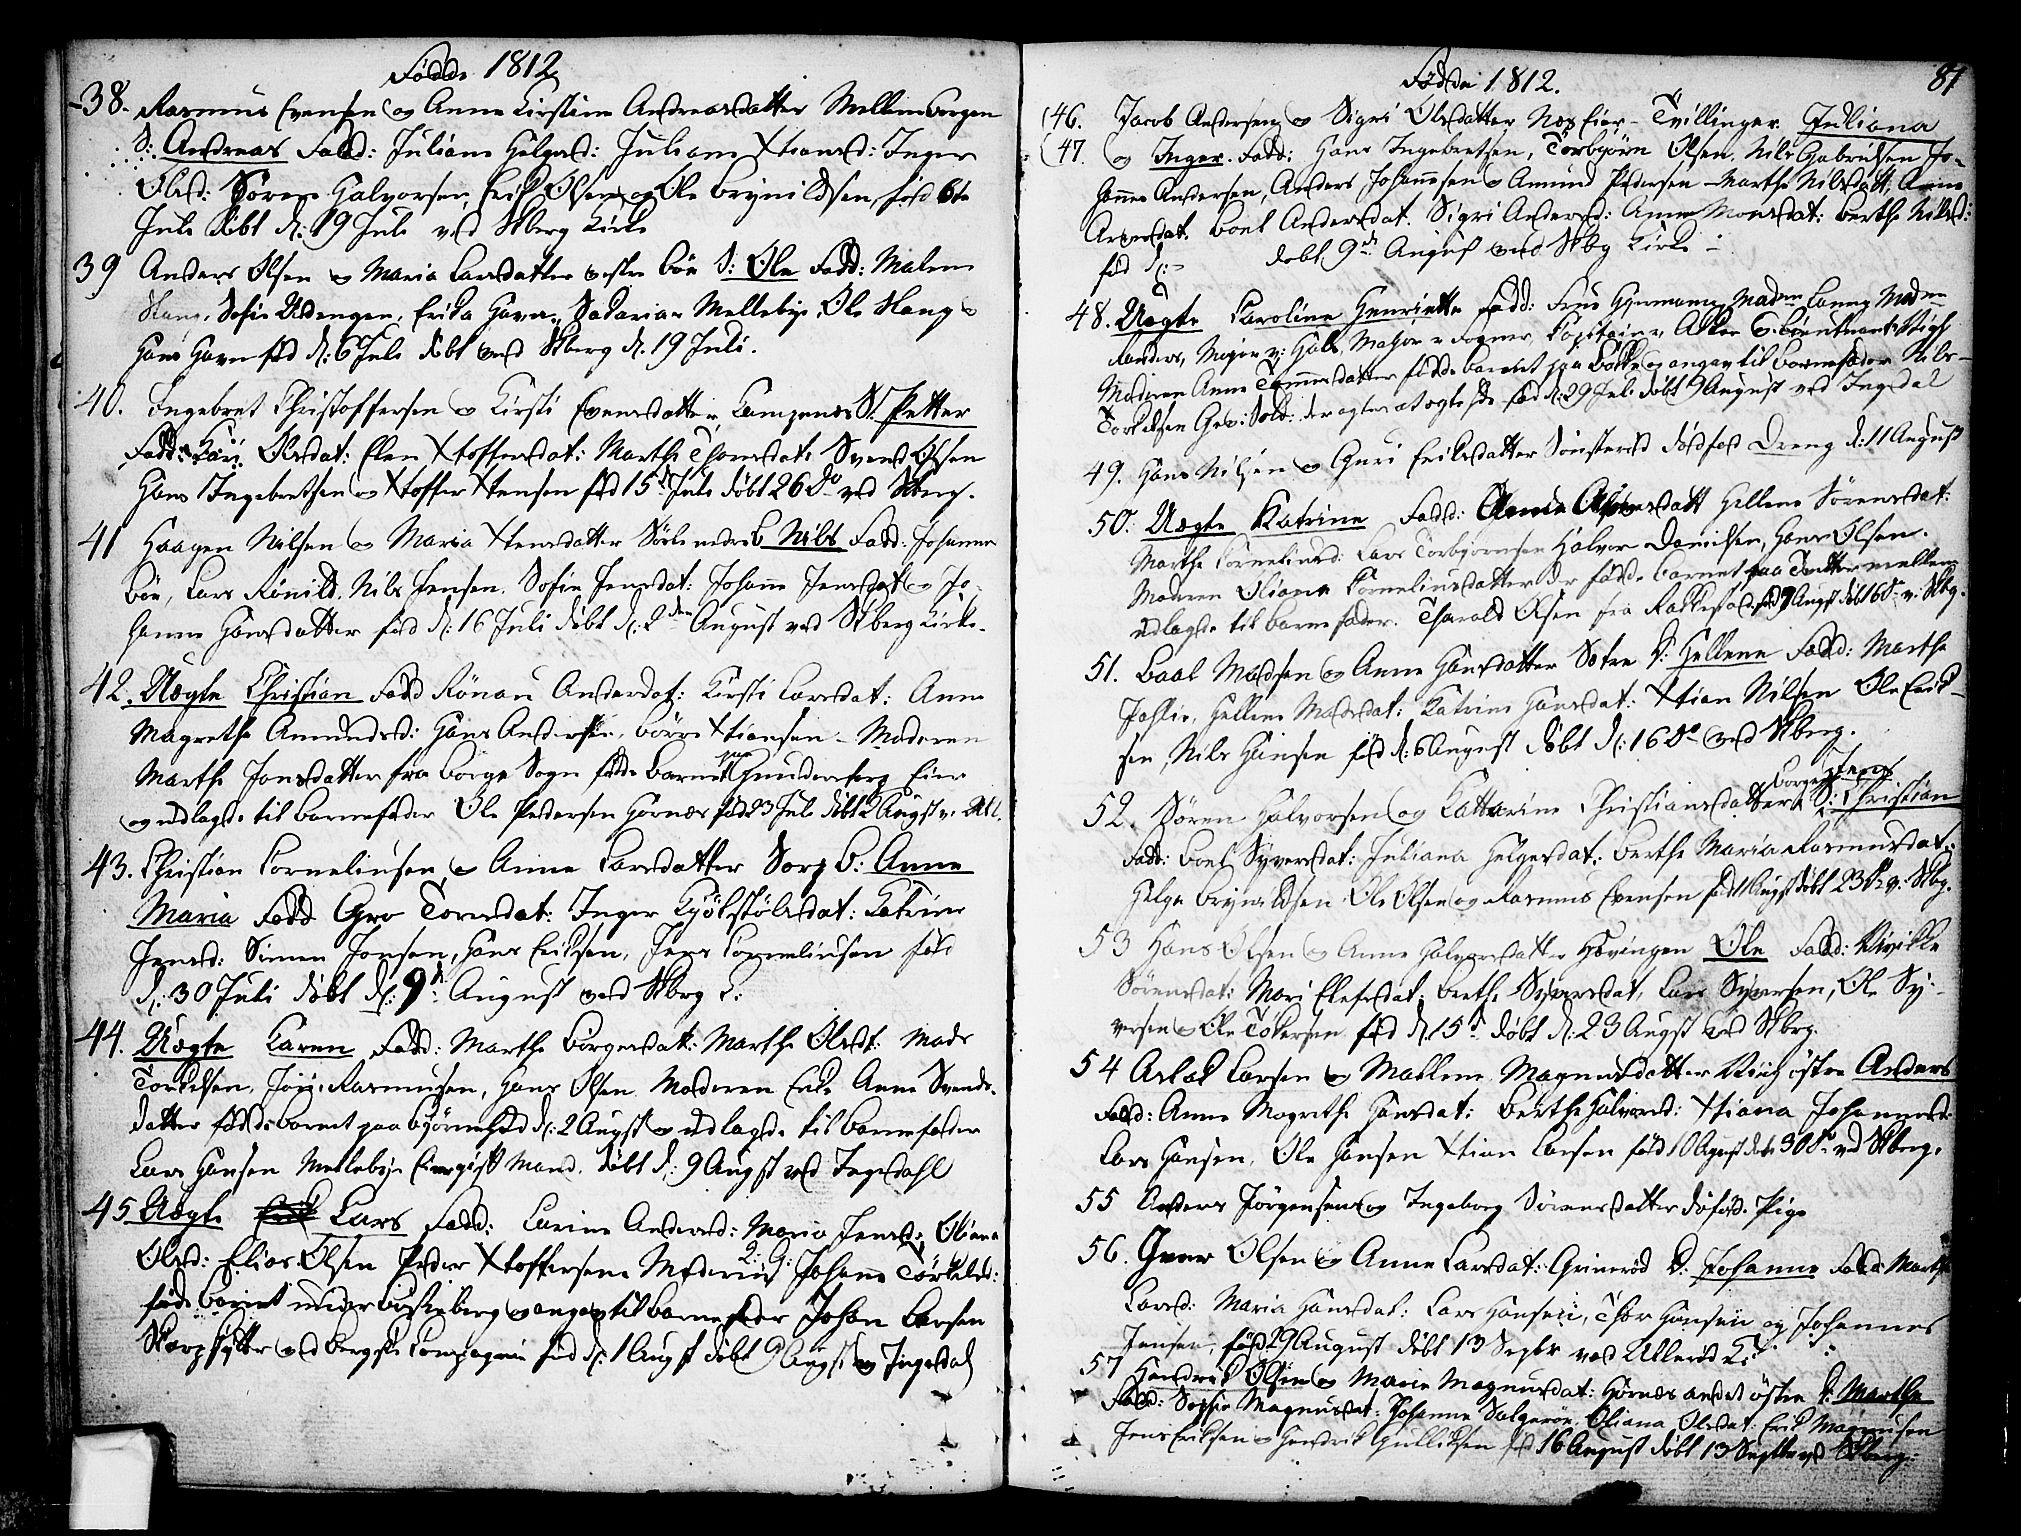 Födde 1812
38. Rasmus Evensen og Anne Kirstine Andreasdatter Mellemborgen
S: Andreas Fadd: Juliane Helgesd: Juliane Xtiansd: Inger
Olesd: Sören Halvorsen, Erik Olsen og Ole Brynildsen, föd 6te
Juli döbt d: 19 Juli ved Skberg Kirke
39 Anders Olsen og Maria Larsdatter Böe S: Ole Fadd: Malene
Haug, Sofie Udengen, Erika Haven, Sakarias Mellebye, Ole Haug og
Hans Haven föd d: 6 Juli döbt ved Skberg d: 19 Juli.
40. Ingebret Christoffersen og Kirsti Evensdatter Kampenes S: Petter
Fadd: Kari Olesdat: Elen Xtoffersdat: Marthe Thomesdat: Svend Olsen
Hans Ingebretsen og Xtoffer Xtensen föd 15d Juli döbt 26 do ved Skberg.
41 Haagen Nilsen og Maria Xtensdatter Nils Fadd: Johanne
Böe, Lars Rönild, Nils Jensen, Sofie Jensdat: Johanne Jensdat og Jo-
hanne Hansdatter föd d: 16 Juli döbt d: 2den August ved Skberg Kirke.
42. Uægte Christian Fadd Rönau Andersdat: Kirsti Larsdat: Anne
Magrethe Amundsd: Hans Andersen, Börre Xtiansen - Moderen
Marthe Jonsdatter fra Borge Sogn föde barnet paa Gundersborg Eier
og udlagde til barnefader Ole Pedersen Hornæs föd 23 Juli döbt 2 Augst v: Ull.
43. Christian Corneliusen og Anne Larsdatter Sorp b: Anne
Maria Fadd Gro Toresdat: Inger Kjölstölsdat: Katrine
Jensd: Simen Jonsen, Hans Eriksen, Jens Corneliusen föd
d: 30 Juli döbt d: 9d August ved Skberg K:
44. Uægte Karen Fadd: Marthe Börgersdat: Marthe Olesdt: Mads
Torkelsen, Jörg: Rasmusen, Hans Olsen Moderen Enke Anne Svends-
datter föd barnet paa d: 2 Augst og udlagde til barnefader
Lars Hansen Mellebye Mand. döbt d: 9 Augst ved Ingedahl
45 Uægte Lars Fadd: Karine Andersd: Maria Jensd: Oliana
Olesd: Elias Olsen Peder Xtoffersen Moderen Johanne Torkelsd:
föde barnet under og angav til barnefader Johan Larsen
ved Bergske Compagnie föd d: 1 Augst döbt 9 Augst ved Ingedal
Födde 1812. 81
(46. Jacob Andersen og Sigri Olesdatter Næs Eier - Tvillinger Juliana
(47. og Inger. Fadd: Hans Ingebretsen, Torbjörn Olsen, Nils Gabrielsen Jo-
hannes Andersen, Anders Johannesen og Amund Pedersen - Marthe Nilsdatt, Anne
Arnesdat. Boel Andersdat. Sigri Andersd: Anne Monsdat: Berthe Nilsd:
föd d: - döbt 9de August ved Skbg Kirke -
48. Uægte Karoline Henriette Fadd: Frue Hjermann, Madm Lanng Madm
Randers, Major v: Hals, Major v Kapitain Lieutnant
Moderen Anne födde barnet paa Bakke og angav til barnefader Nils
Torkelsen Gev: Sold: föd d: 29 Juli döbt 9 August ved Ingedal
49. Hans Nilsen og Guri Eriksdatter Dödfød Dreng d: 11 August
50. Uægte Katrine Fadd: Hellene Sörensdat:
Marthe Corneliusd: Lars Torbjörnsen Halvor Danielsen, Hans Olsen.
Moderen Oliana Korneliusdatter der födde barnet paa Tvetter mellem
udlagde til barnefader. Tharald Olsen fra Rakkestad, föd 9 Augst döbt 16 do v: Skbg.
51. Baal Madsen og Anne Hansdatter Sætre D: Hellene Fadd: Marthe
Hellene Madsdat: Katrine Hansdat: Xtian Nilsen Ole Erik-
sen, Nils Hansen föd d: 6 August döbt d: 16 do ved Skberg.
52. Sören Halvorsen og Kattarine Christiansdatter Borgen S: Jens Christian
Fadd: Boel Syversdat: Juliana Helgesdat: Berthe Maria Rasmusdat:
Helge Brynildsen Ole Olsen og Rasmus Evensen föd 11 Augst döbt 23 do v: Skbg.
53 Hans Olsen og Anne Halvorsdatter Hevingen Ole Fadd: Wivikke
Sörensdat: Mari Elefsdat: Berthe Syversdat, Lars Syversen, Ole Sy-
versen og Ole Tolersen föd d: 15d döbt d: 23 Augst ved Skberg.
54 Aslak Larsen og Mallene Magnusdatter östre Anders
Fadd: Anne Magrethe Hansdat: Berthe Halvorsd: Xtiana Johannesd:
Lars Hansen, Ole Hansen Xtian Larsen föd 10 Agust döbt 30 do ved Skberg.
55 Anders Jörgensen og Ingeborg Sörensdatter dödföd. Pige
56. Iver Olsen og Anne Larsdat: Grimeröd D: Johanne Fadd: Marthe
Larsd: Maria Hansdat: Lars Hansen, Thor Hansen og Johannes
Jensen, föd 29 August döbt 13 Septbr ved Ulleröd K:
57 Hendrik Olsen og Marie Magnusdat: Hornæs andet östre D: Marthe
Fadd: Sophie Magnusdat: Johanne Oliana Olesdat: Erik Magnusen
Jens Eriksen og Hendrik Gulliksen föd 16 August döbt 13 Septbr ved Skberg: